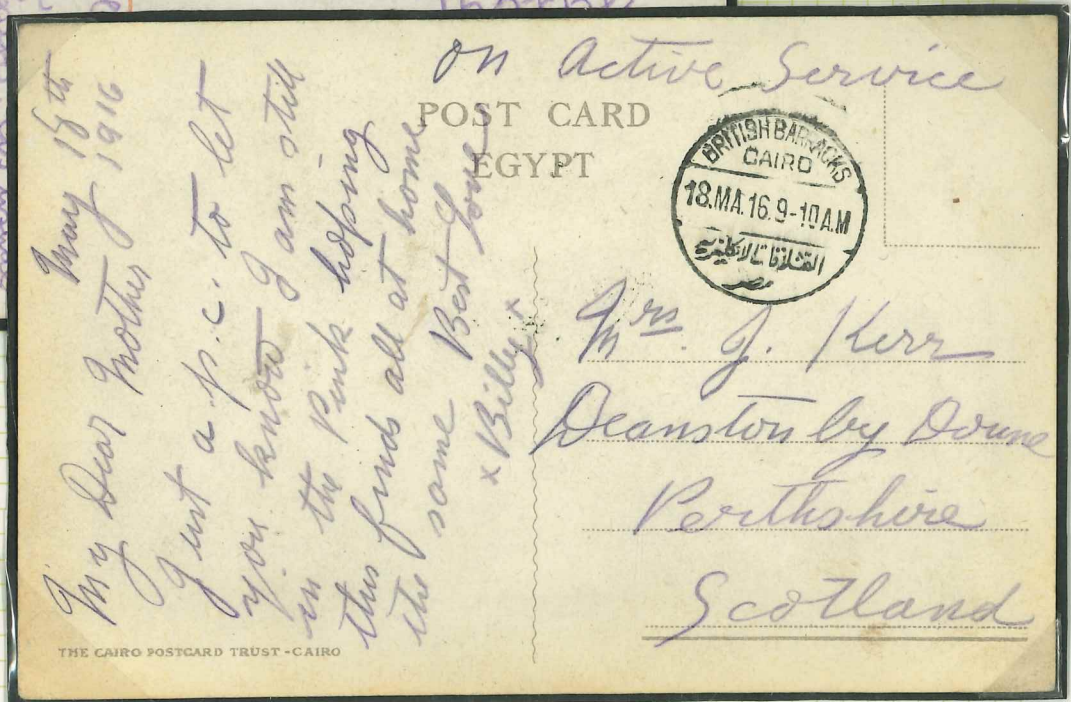 on Active Service
POST CARD
EGYPT
BRITISH BARRACKS
CAIRO
18.MA.16.9-10A.M
القشلاقات الانكليزية
مصر
May 18th
1916
My Dear Mother
Just a p.c. to let
you know I am still
in the Pink hoping
this finds all at home
the same Best Love
x Billy x
Mrs. J. Kerr
Deanston by Doune
Perthshire
Scotland
THE CAIRO POSTCARD TRUST - CAIRO